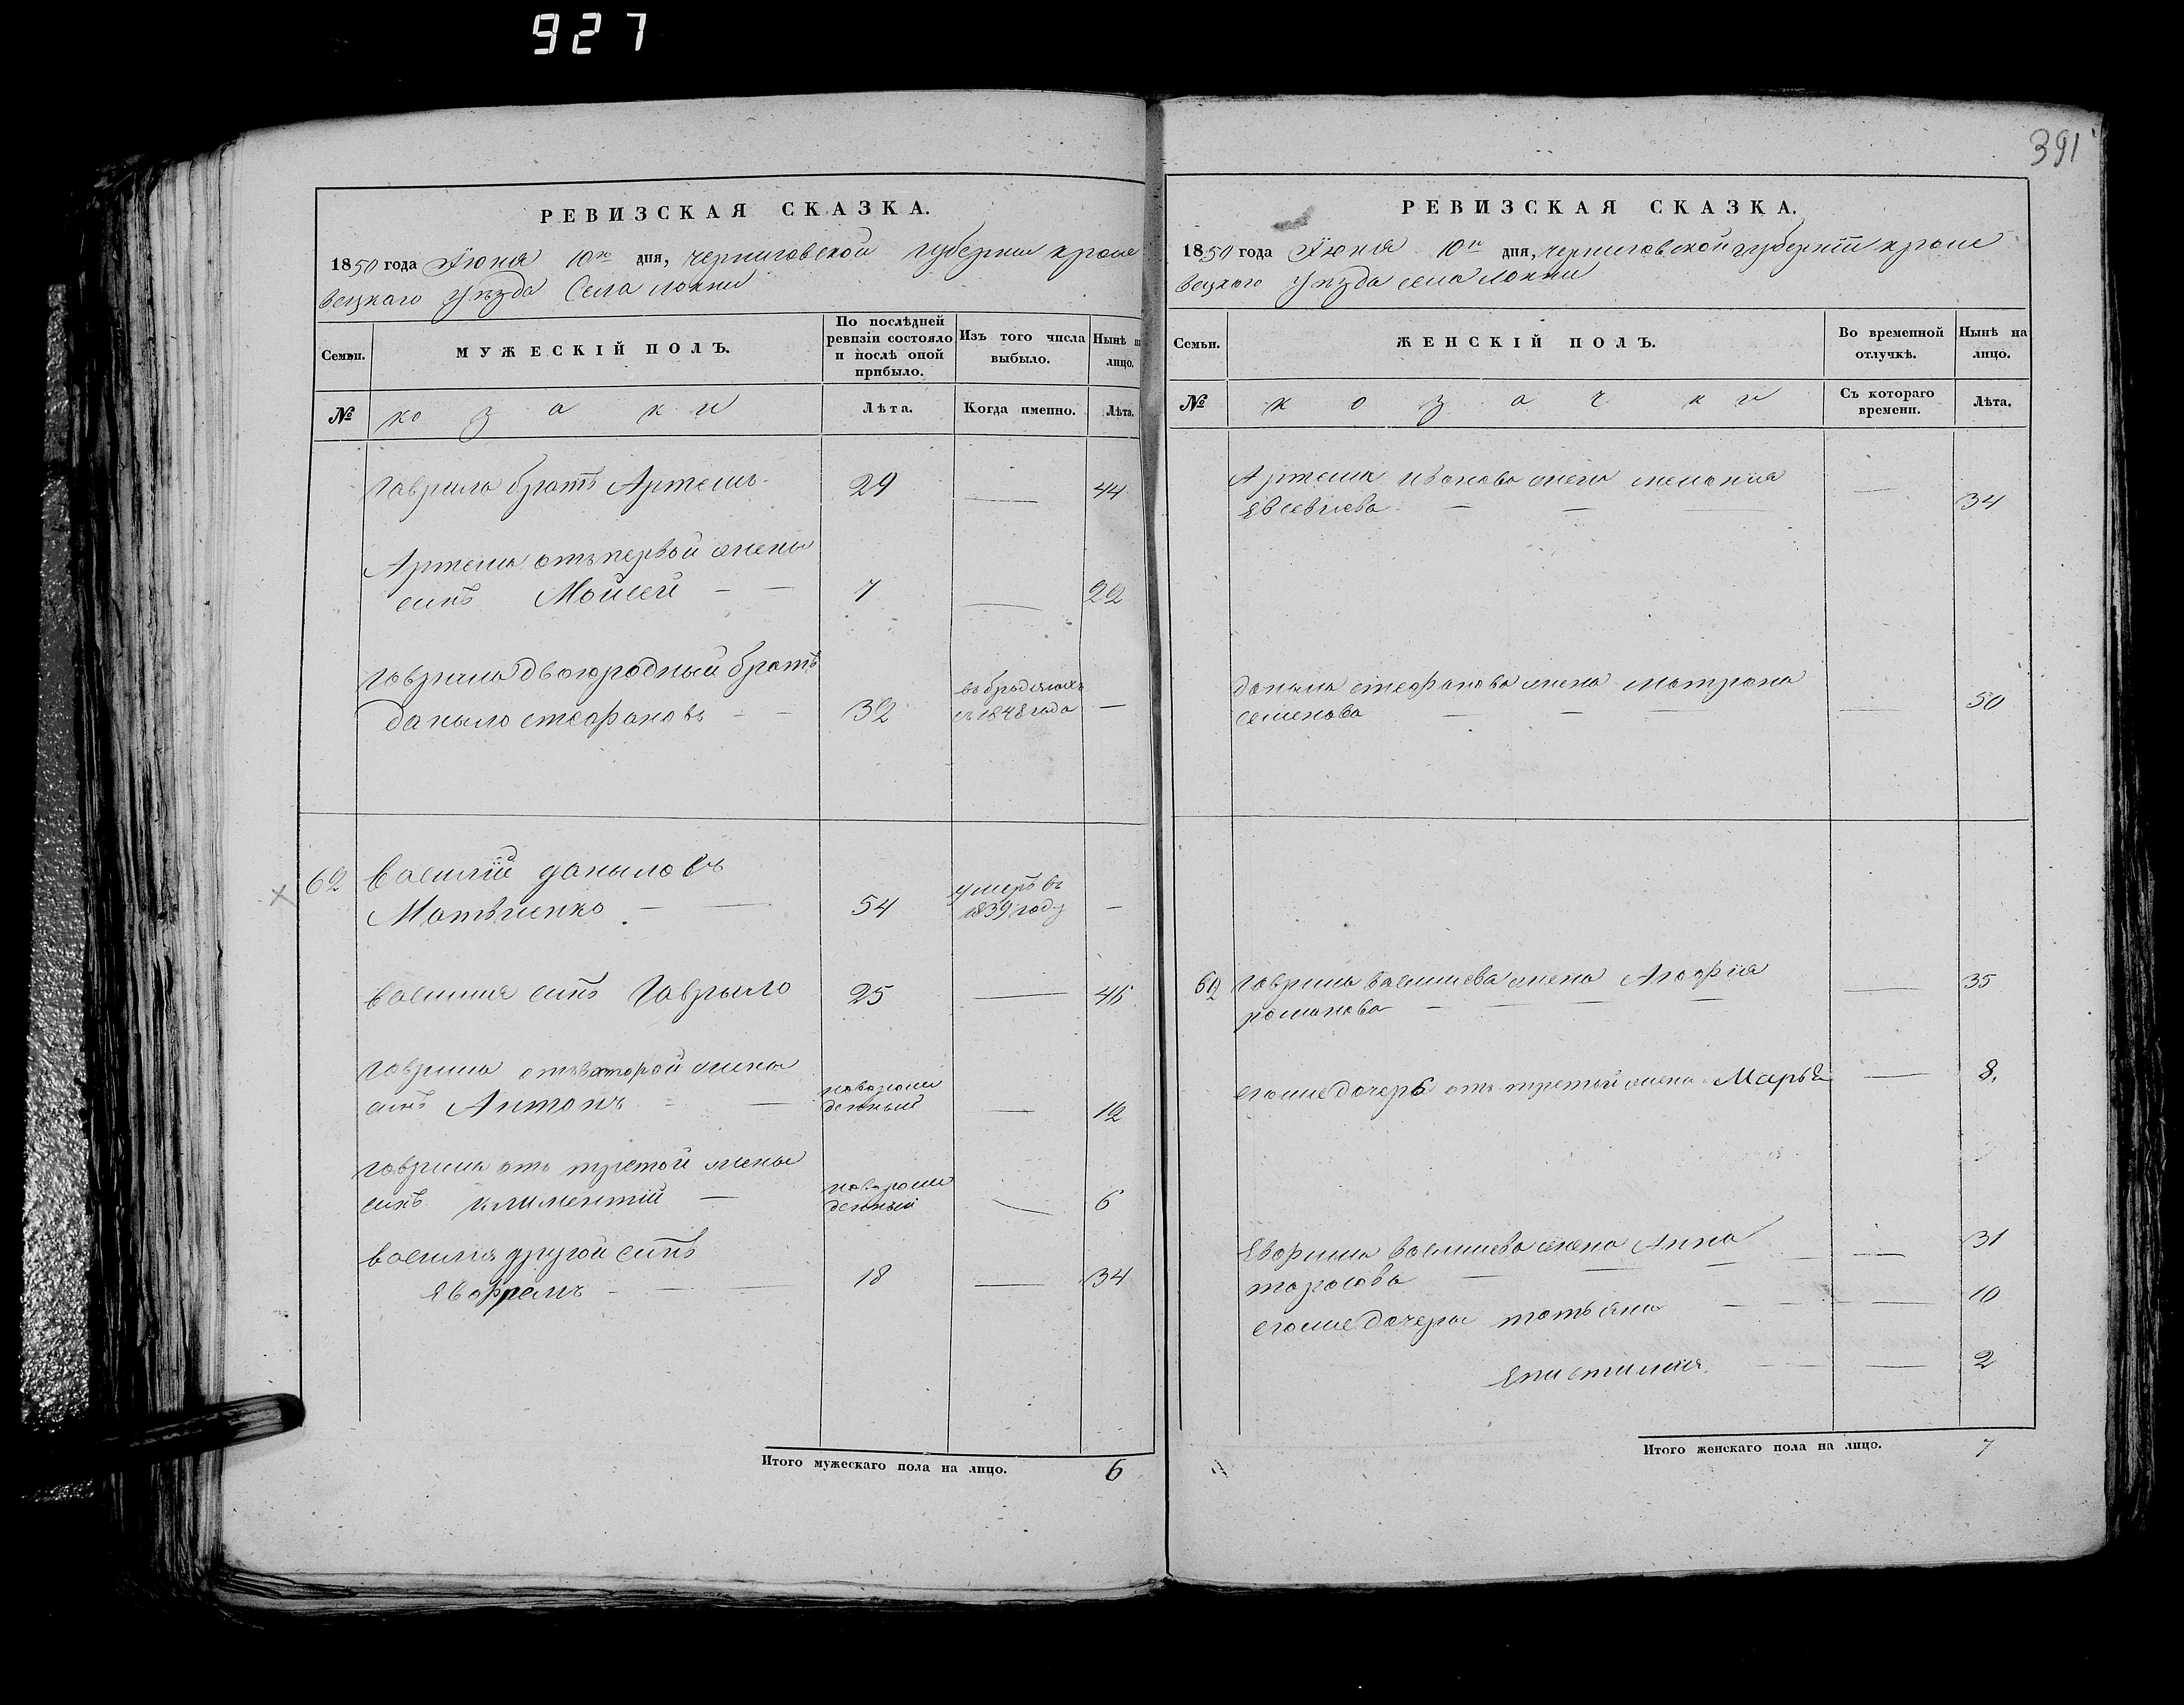 927
391
РЕВИЗСКАЯ СКАЗКА.
1850 года Іюня 10го дня, черниговской губернии кроле
вецкаго уѣзда Села локни
Семьи.
МУЖЕСКІЙ ПОЛЪ.
По послѣдней ревизіи состояло и послѣ оной прибыло.
Изъ того числа выбыло.
Нынѣ н лицо.
№
козаки
Лѣта.
Когда именно.
Лѣта.
Гаврила братъ Артемъ 29 — 44
Артема отъ первой жены
сынъ Мойсей — — 7 — 22
Гаврила двоюродный братъ
данило стефановъ — — 32 въ бродягахъ
съ 1848 года —
62 Василій даниловъ
Матвіенко — — 54 умеръ въ
1839 году —
Василия сынъ Гаврыло 25 —
Гаврила отъ второй жены
сынъ Антонъ — — новорож
денный — 12
Гаврила отъ третой жены
сынъ климентій — новорож
денный — 6
Василия другой сынъ
Евфремъ — — — 18 — 34
Итого мужескаго пола на лицо. 6
РЕВИЗСКАЯ СКАЗКА.
1850 года Іюня 10го дня, черниговской губерніи кроле
вецкого уѣзда села локни
Семьи.
ЖЕНСКІЙ ПОЛЪ.
Во временной отлучкѣ.
Нынѣ на лицо.
№
козачки
Съ котораго времени.
Лѣта.
Артема иванова жена меланія
Евсевиева — — — 34
данила стефанова жена матрона
семенова — — — — 50
62 Гаврила василиева жена Агафія — 35
романова — — — —
егоже дочерь отъ третой жены Марья — 8.
Евфрима василиева жена Анна — — 31
тарасова — — —
егоже дочеры татьяна — — — 10
Епистимия — — — 2
Итого женскаго пола на лицо. 7